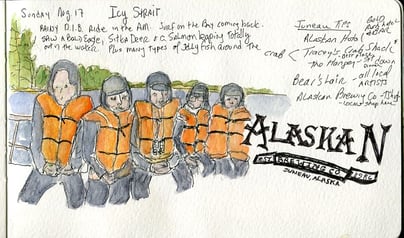 Sunday Aug 17 Icy Strait
RAINY R.I.B. Ride in the A.M. Surf on the Bay coming back.
SAW a BALD Eagle, Sitka Deer & a Salmon leaping Totally
out of the water. Plus many types of Jelly Fish Around The
Juneau Tips
Alaskan Hotel
crab
Tracey's Crab Shack
the Hangar
Bear's Lair - all local
ARTISTS
Alaskan Brewing Co - T-Shirt
ALASKAN
EST BREWING CO. 1986
JUNEAU, ALASKA